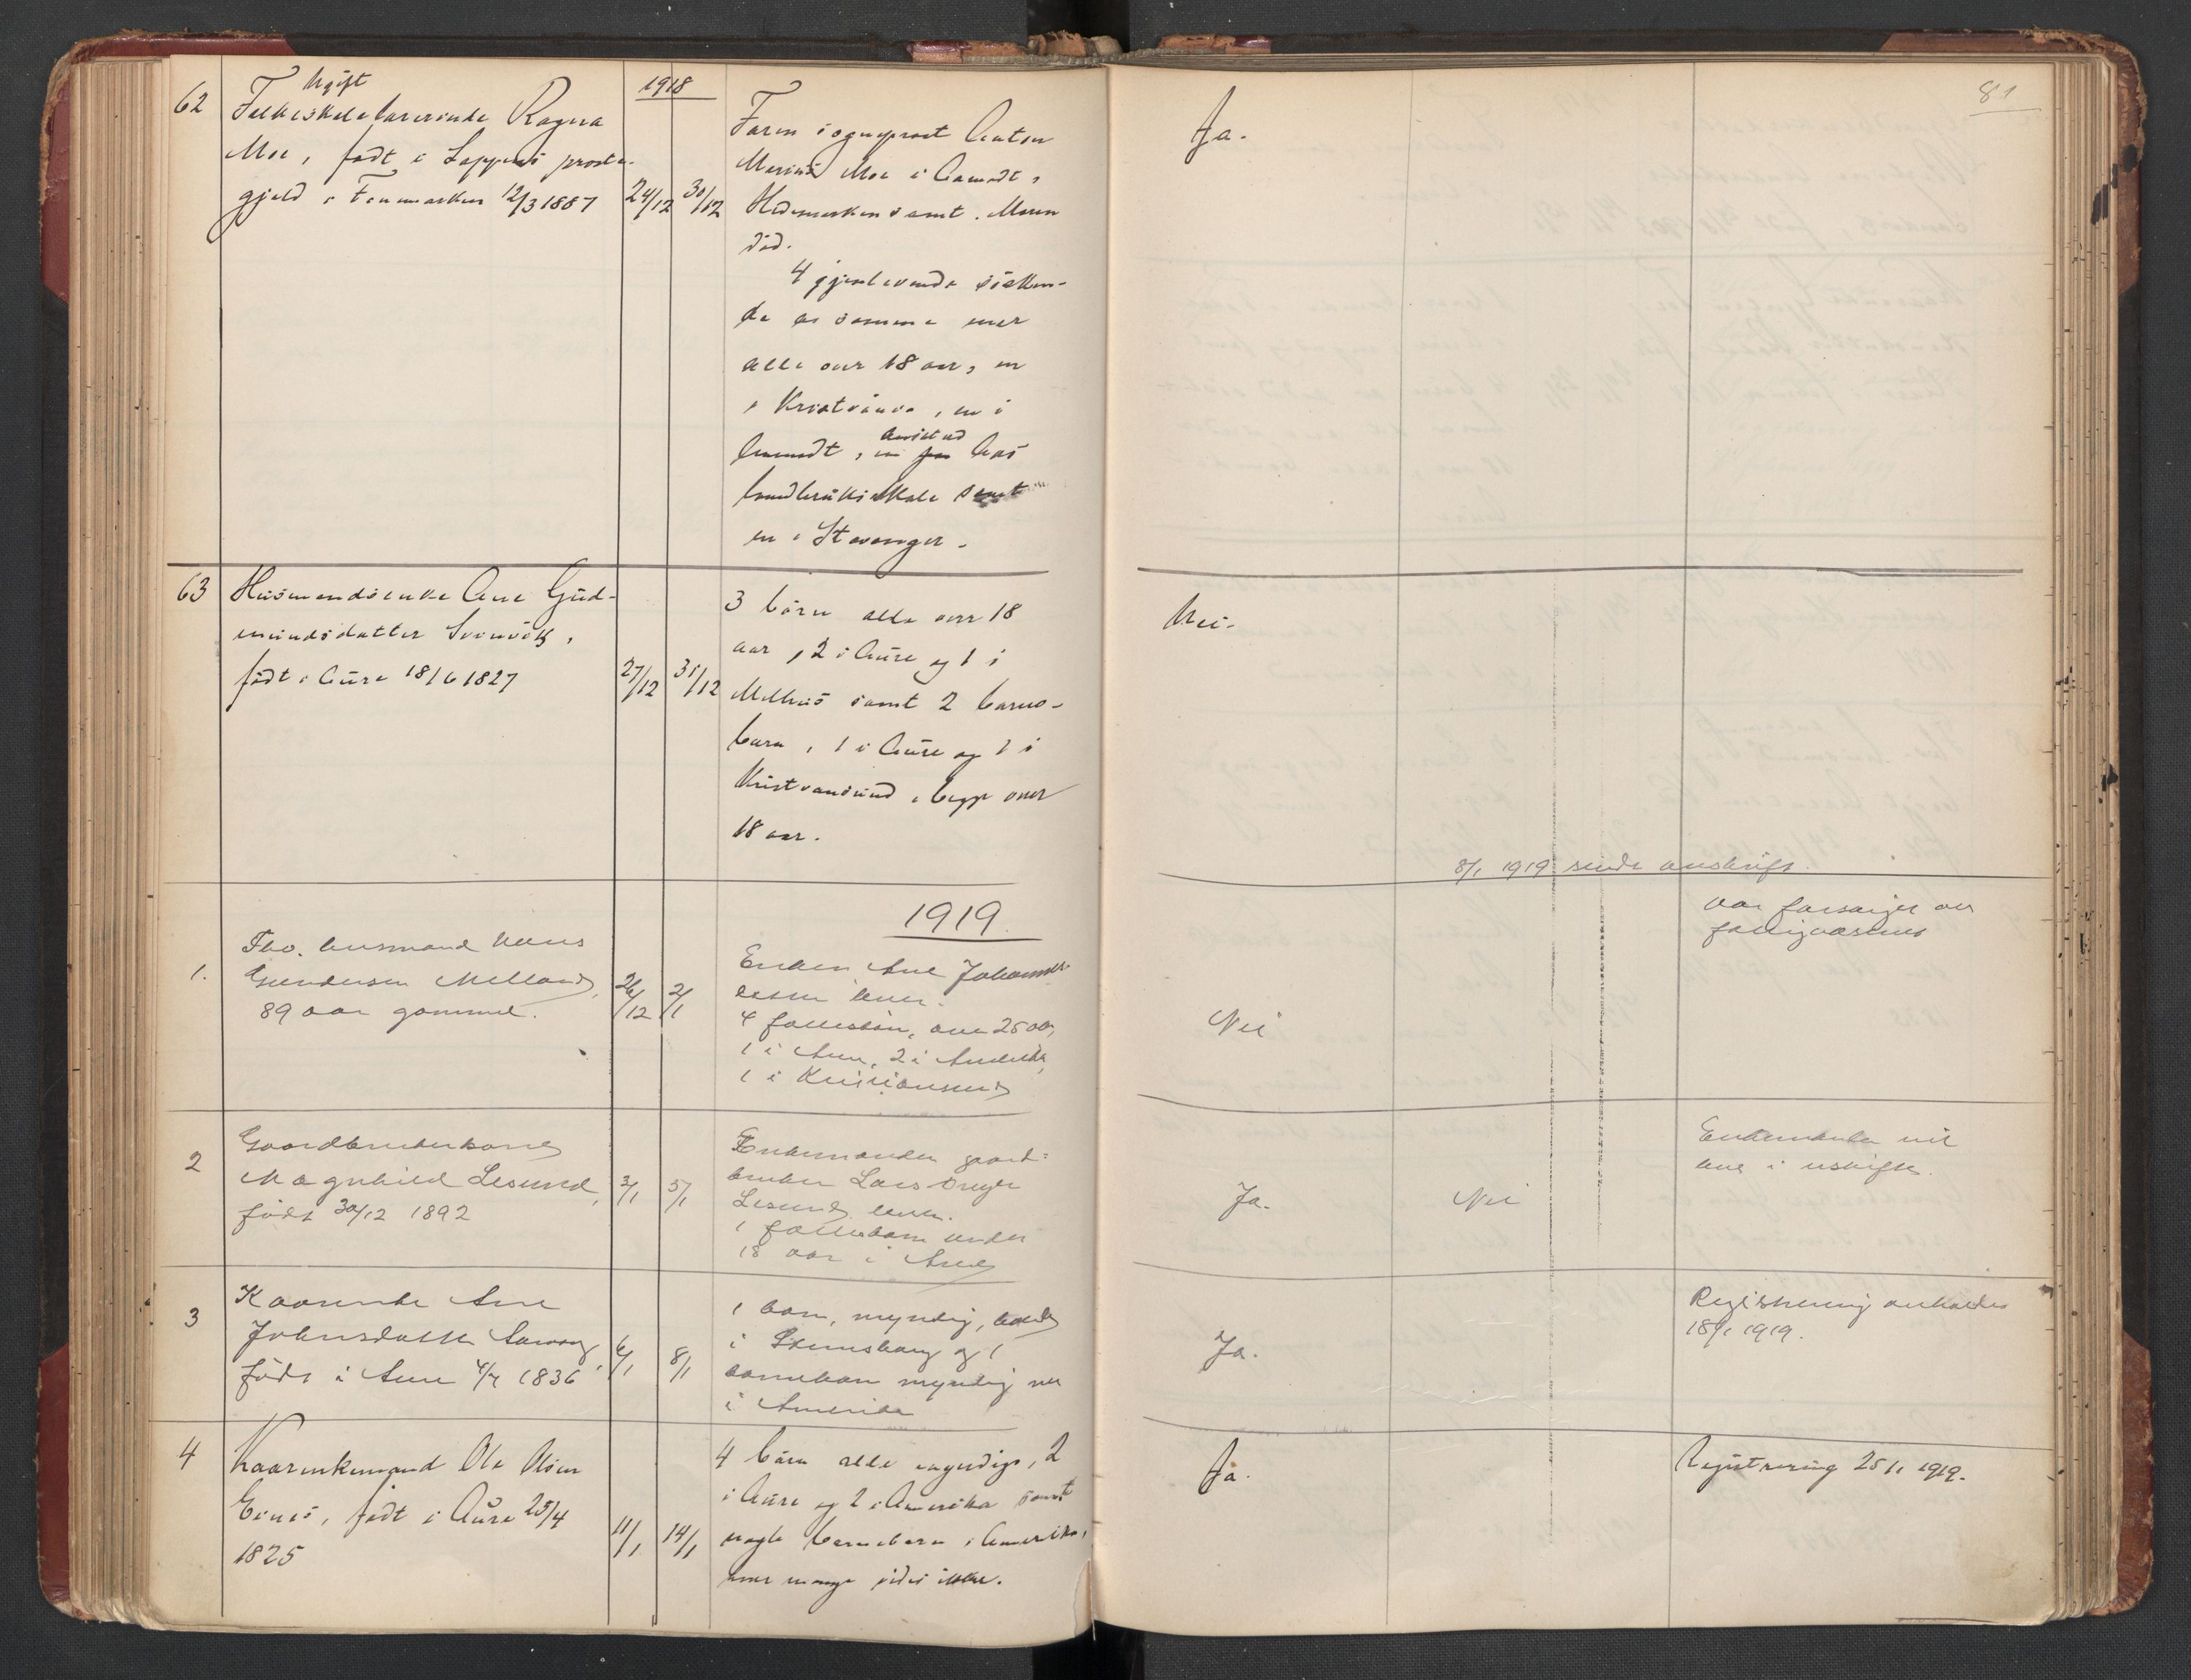 81
1918
62
Ugift
Folkeskolelærerinde Ragna
Moe, født i Loppens præste-
gjeld i Finmarken 12/3 1887
24/12 30/12
Faren sogneprest Anton
Marius Moe i Aamodt,
Hedemarkens amt. Moren
død.
4 gjenlevende søsken-
de av samme mor
alle over 18 aar, en
i Kristiania, en i
Aamodt, en ansat ved Aas
landbrukskole samt
en i Stavanger.
Ja.
63
Husmandsenke Ane Gud-
mundsdatter Svinvik,
født i Aure 18/6 1827
27/12 31/12
3 børn alle over 18
aar, 2 i Aure og 1 i
Melhus samt 2 barne-
barn, 1 i Aure og 1 i
Kristiansund, begge over
18 aar.
Nei.
8/1 1919 sendt avskrift.
1919.
1.
Fhv. husmand Hans
Gundersen Melland,
89 aar gammel.
26/12 2/1
Enken Ane Johannes-
lever.
4 fællesbørn, over 25 aar,
1 i Aure, 2 i Amerika,
1 i Kristiansund
Nei
Var forsørget av
fattigvæsenet
2
Gaardbrukerkone
Magnhild Lesund,
født 30/12 1892
3/1 5/1
Enkemanden gaard-
bruker Lars
Lesund lever.
1 fællesbarn under
18 aar i Aure
Ja.
Nei
Enkemanden vil
leve i uskifte.
3
Kaarenke Ane
Johnsdatter
født i Aure 4/4 1836
6/1 8/1
1 barn, myndig,
i og 1
barnebarn myndig
i Amerika
Ja.
Registrering anholdes
18/1 1919.
4
Kaarenkemand Ole Olsen
født i Aure 25/4
1825
11/1 14/1
4 børn alle myndige, 2
i Aure og 2 i Amerika samt
nogle barnebarn i Amerika,
hvor mange vides ikke.
Ja.
Registrering 25/1 1919.